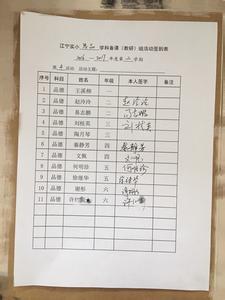 江宁实小 品德 学科备课（教研）组活动签到表
2016 —2017 学年度第 二 学期
第 4 活动 活动主题：
序号 科目 姓名 年级 本人签字 备注
1 品德 王溪柳 一
2 品德 赵沿沿 二 赵沿沿
3 品德 易志鹏 二 易志鹏
4 品德 刘桂英 三 刘桂英
5 品德 陶月琴 三
6 品德 秦静芳 四 秦静芳
7 品德 文佩 四 文佩
8 品德 何明珍 五 何明珍
9 品德 徐继华 五 徐继华
10 品德 谢彤 六 谢彤
11 品德 许 六 许